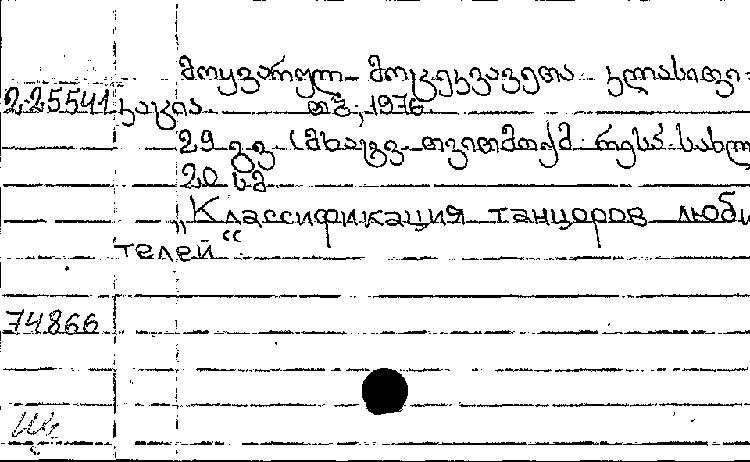 მოყვარულ მოცეკვავეთა კლასიფი-
2.25541 კაცია. თბ., 1976.
29 გვ. (მხატვ. თვითმოქმ. რესპ. სახლ
20 სმ
„Классификация танцоров люби
телей“
74866